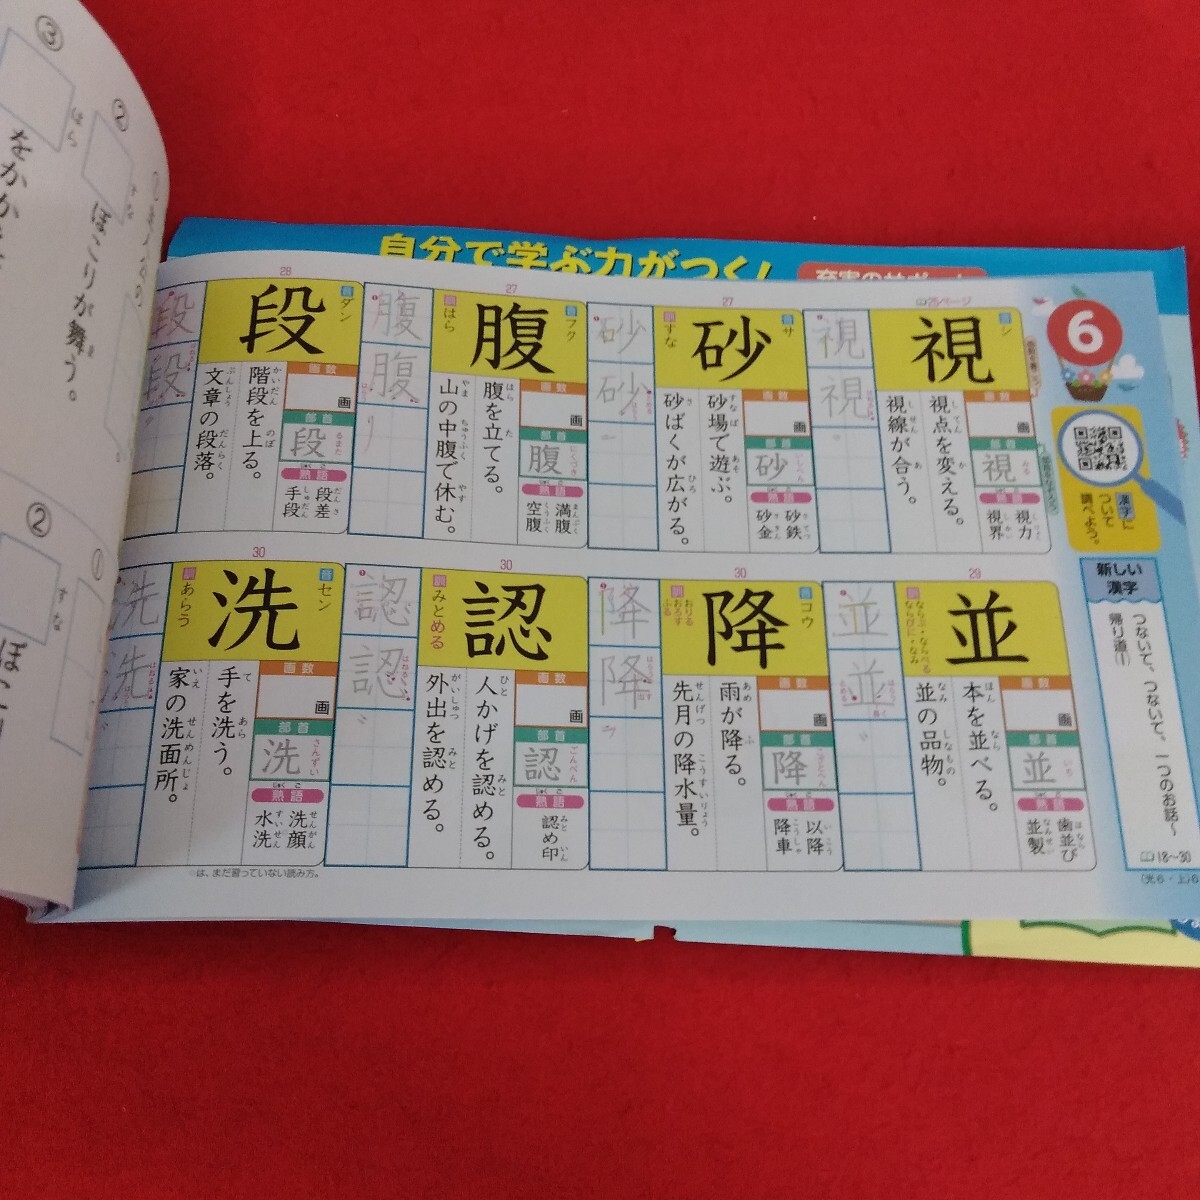 自分で学ぶ力がつく!
6
漢字について調べよう。
新しい漢字
つないで、つないで、一つのお話〜
帰り道(1)
18〜30
(光6・上)6
25ページ
視
音 シ
視点を変える。
視線が合う。
画数
画
部首
視
熟語
視力
視界
27
砂
音 サ
訓 すな
砂場で遊ぶ。
砂ばくが広がる。
画数
画
部首
砂
熟語
砂鉄
砂金
27
腹
音 フク
訓 はら
腹を立てる。
山の中腹で休む。
画数
画
部首
腹
にくづき
熟語
満腹
空腹
28
段
音 ダン
階段を上る。
文章の段落。
画数
画
部首
段
るまた
熟語
段差
手段
29
並
訓 ならぶ・ならべる
ならびに・なみ
本を並べる。
並の品物。
画数
画
部首
並
いち
熟語
歯並び
並製
30
降
音 コウ
訓 おりる
おろす
ふる
雨が降る。
先月の降水量。
画数
画
部首
降
こざとへん
熟語
以降
降車
30
認
訓 みとめる
人かげを認める。
外出を認める。
画数
画
部首
認
ごんべん
熟語
認め印
30
洗
音 セン
訓 あらう
手を洗う。
家の洗面所。
画数
画
部首
洗
さんずい
熟語
洗顔
水洗
○は、まだ習っていない読み方。
③
はら
をかか
②
すな
ぼこりが舞う。
②
すな
①